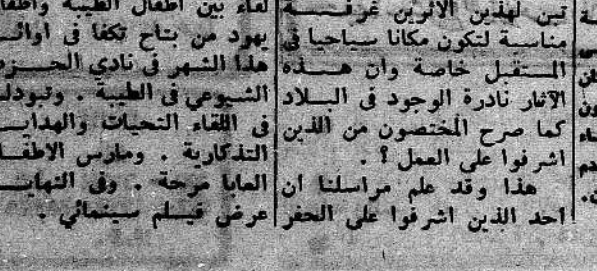 تبن لهذين الاثرين غرفة
مناسبة لتكون مكانا سياحيا في
المستقبل خاصة وان هذه
الآثار نادرة الوجود في البلاد
كما صرح المختصون من الذين
اشرفوا على العمل ؟ .
هذا وقد علم مراسلنا ان
احد الذين اشرفوا على الحفر
لقاء بين اطفال الطيبة واطفا
يهود من بتاح تكفا في اوائـ
هذا الشهر في نادي الحـزب
الشيوعي في الطيبة . وتبودلـ
في اللقاء التحيات والهدايـ
التذكارية . ومارس الاطفـا
العابا مرحة . وفي النهايـ
عرض فيلم سينمائي .